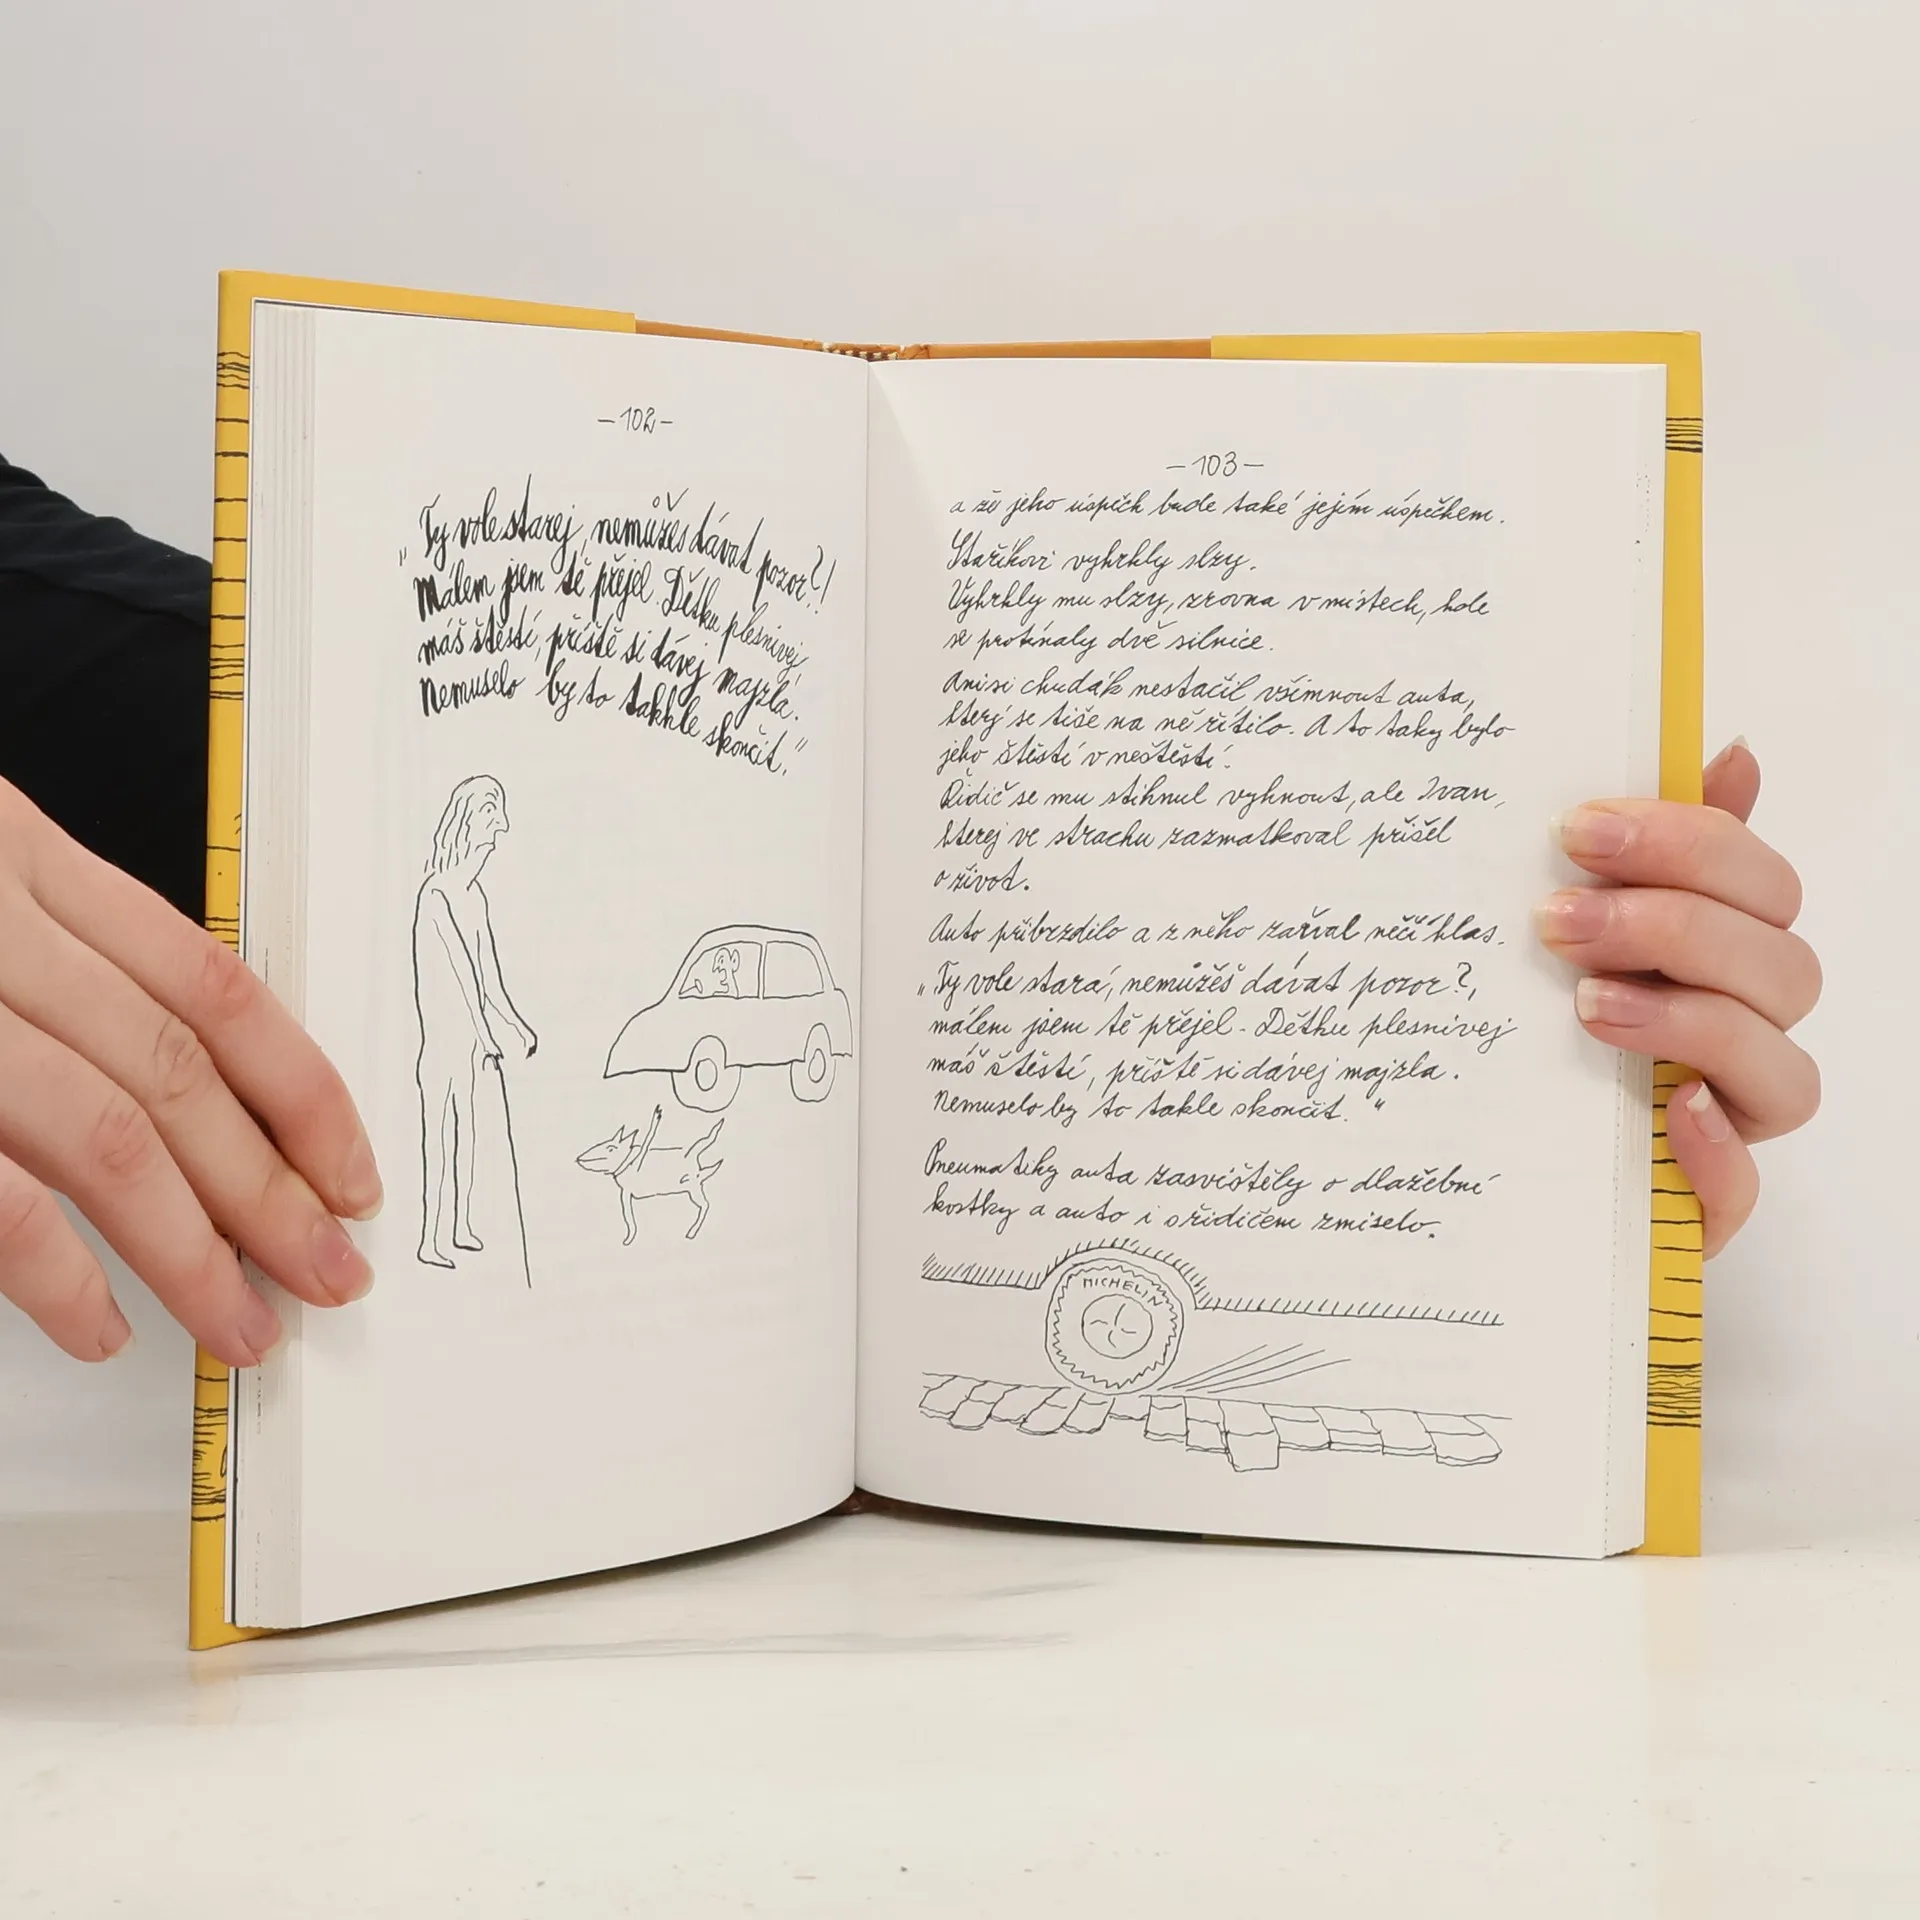 -102-
„Ty vole starej, nemůžeš dávat pozor?!
Málem jsem tě přejel. Dětku plesnivej,
máš štěstí, příště si dávej majzla.
Nemuselo by to takhle skončit."
-103-
a že jeho úspěch bude také jejím úspěchem.
Staříkovi vyhrkly slzy.
Vyhrkly mu slzy, zrovna v místech, kde
se protínaly dvě silnice.
Ani si chudák nestačil všimnout auta,
který se tiše na ně řítilo. A to taky bylo
jeho štěstí v neštěstí.
Řidič se mu stihnul vyhnout, ale Ivan,
kterej ve strachu zazmatkoval přišel
o život.
Auto přibrzdilo a z něho zařval něčí hlas.
„Ty vole stará, nemůžeš dávat pozor?,
málem jsem tě přejel - Dětku plesnivej
máš štěstí, příště si dávej majzla.
Nemuselo by to takle skončit."
Pneumatiky auta zasvištěly o dlažební
kostky a auto i s řidičem zmizelo.
MICHELIN